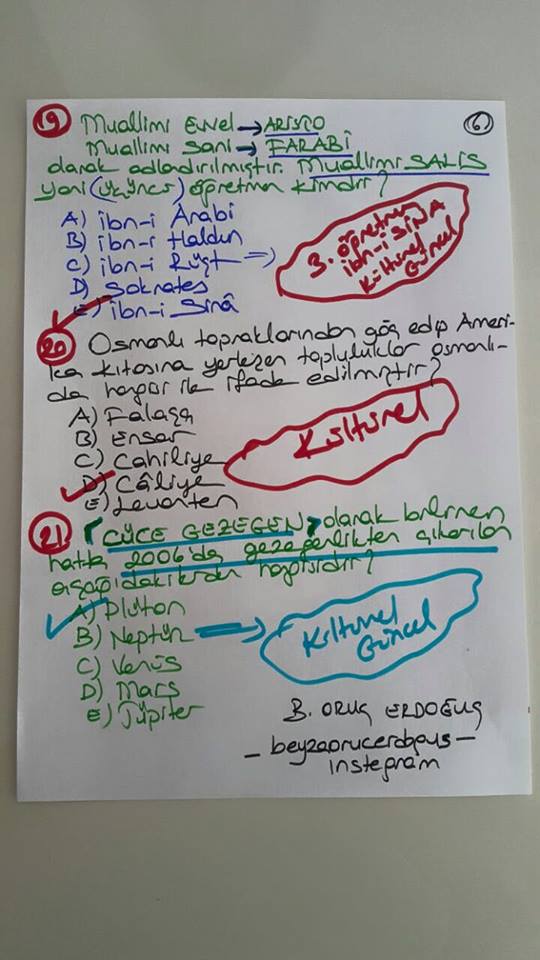 19 Muallimi Evvel → ARİSTO
6
Muallimi Sani → FARABİ
olarak adlandırılmıştır. Muallimi SALİS
yani (üçüncü) öğretmen kimdir?
A) ibn-i Arabi
B) ibn-i Haldun
C) ibn-i Rüşt ⇒
D) Sokrates
E) ibn-i Sinâ
3. öğretmen
ibn-i SİNA
Kültürel
Güncel
20 Osmanlı topraklarından göç edip Ameri-
ka kıtasına yerleşen topluluklar osmanlı-
da hangisi ile ifade edilmiştir?
A) Falaşa
B) Ensar
C) Cahiliye
D) Câliye
E) Levanten
Kültürel
21 "CÜCE GEZEGEN" olarak bilinen
hatta 2006'da gezegenlikten çıkarılan
aşağıdakilerden hangisidir?
A) Plüton
B) Neptün →
C) Venüs
D) Mars
E) Jüpiter
Kültürel
Güncel
B. ORUÇ ERDOĞUŞ
_ beyzaorucerdogus _
instegram